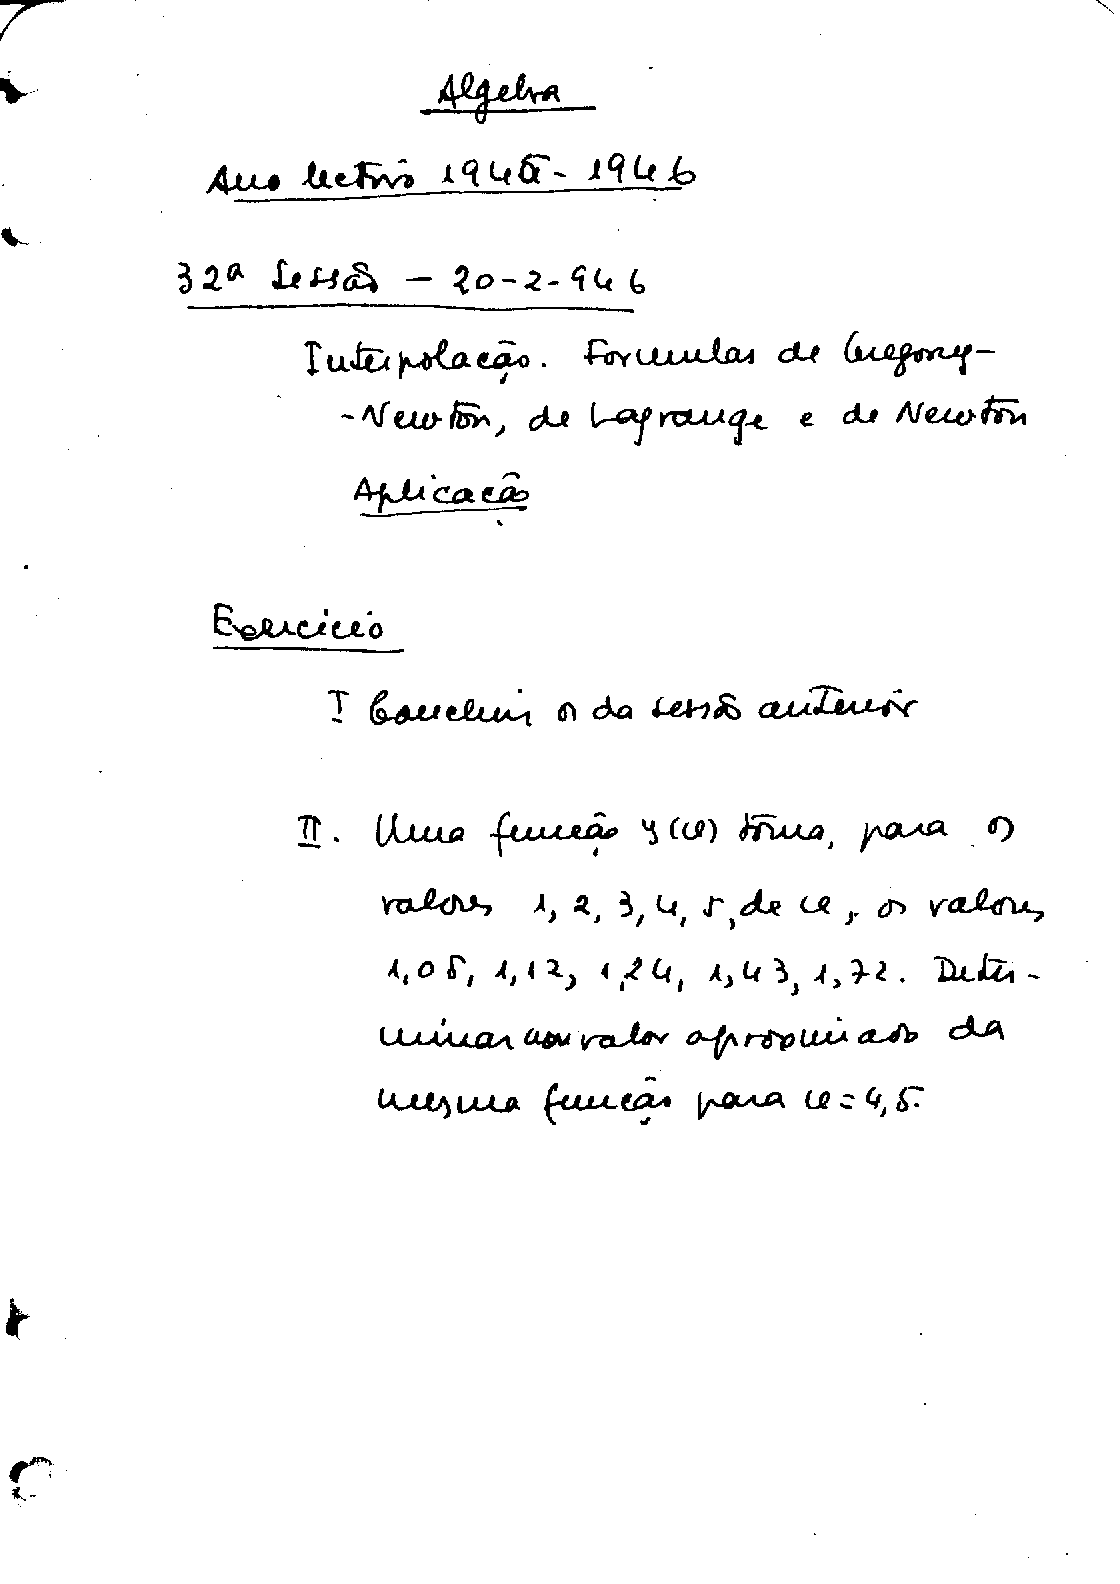 Algebra
Ano lectivo 1945-1946
32ª Sessão - 20-2-946
Interpolação. Formulas de Gregory-
-Newton, de Lagrange e de Newton
Aplicação
Exercicio
I Concluir os da sessão anterior
II. Uma função y(u) toma, para os
valores 1, 2, 3, 4, 5, de u, os valores
1,05, 1,12, 1,24, 1,43, 1,72. Deter-
minar um valor aproximado da
mesma função para u = 4,5.